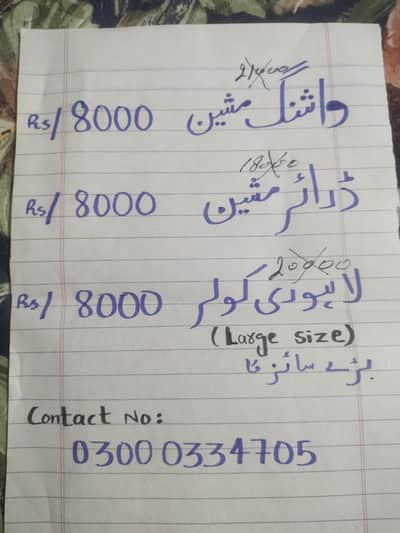 21000
واشنگ مشین Rs/ 8000
18000
ڈرائر مشین Rs/ 8000
20000
لاہوری کولر Rs/ 8000
(Large size)
بڑے سائز کا
Contact No:
0300 0334705